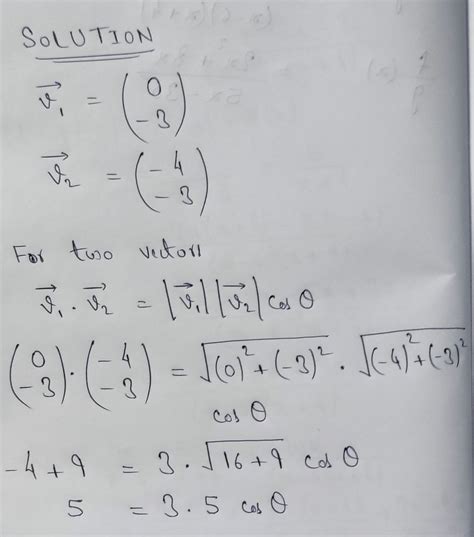 SOLUTION
v⃗₁ = (0 −3)
v⃗₂ = (−4 −3)
For two vectors
v⃗₁ · v⃗₂ = |v⃗₁| |v⃗₂| cos θ
(0 −3) · (−4 −3) = √((0)² + (−3)²) · √((−4)² + (−3)²)
cos θ
−4 + 9 = 3 · √(16 + 9) cos θ
5 = 3 · 5 cos θ